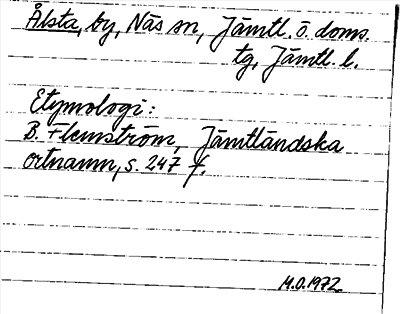 Ålsta, by, Näs sn, Jämtl. ö. doms.
tg, Jämtl. l.
Etymologi:
B. Flemström, Jämtländska
ortnamn, s. 247 f.
M.O.1972